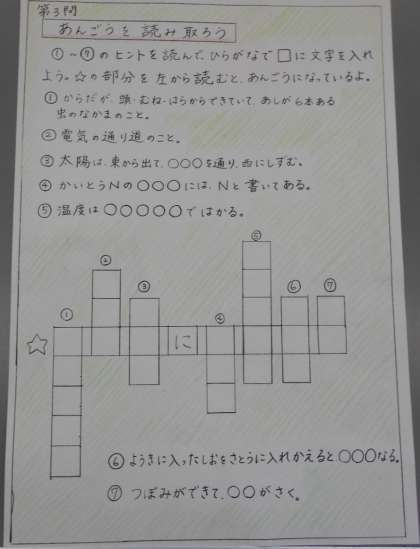 第3問
あんごうを読み取ろう
①～⑦のヒントを読んで、ひらがなで□に文字を入れ
よう。☆の部分を左から読むと、あんごうになっているよ。
①からだが、頭・むね・はらからできていて、あしが6本ある
虫のなかまのこと。
②電気の通り道のこと。
③太陽は、東から出て、○○○を通り、西にしずむ。
④かいとうNの○○○には、Nと書いてある。
⑤温度は○○○○○ではかる。
⑤
②
③
⑥
⑦
①
④
☆
に
⑥ようきに入ったしおをさとうに入れかえると、○○○なる。
⑦つぼみができて、○○がさく。